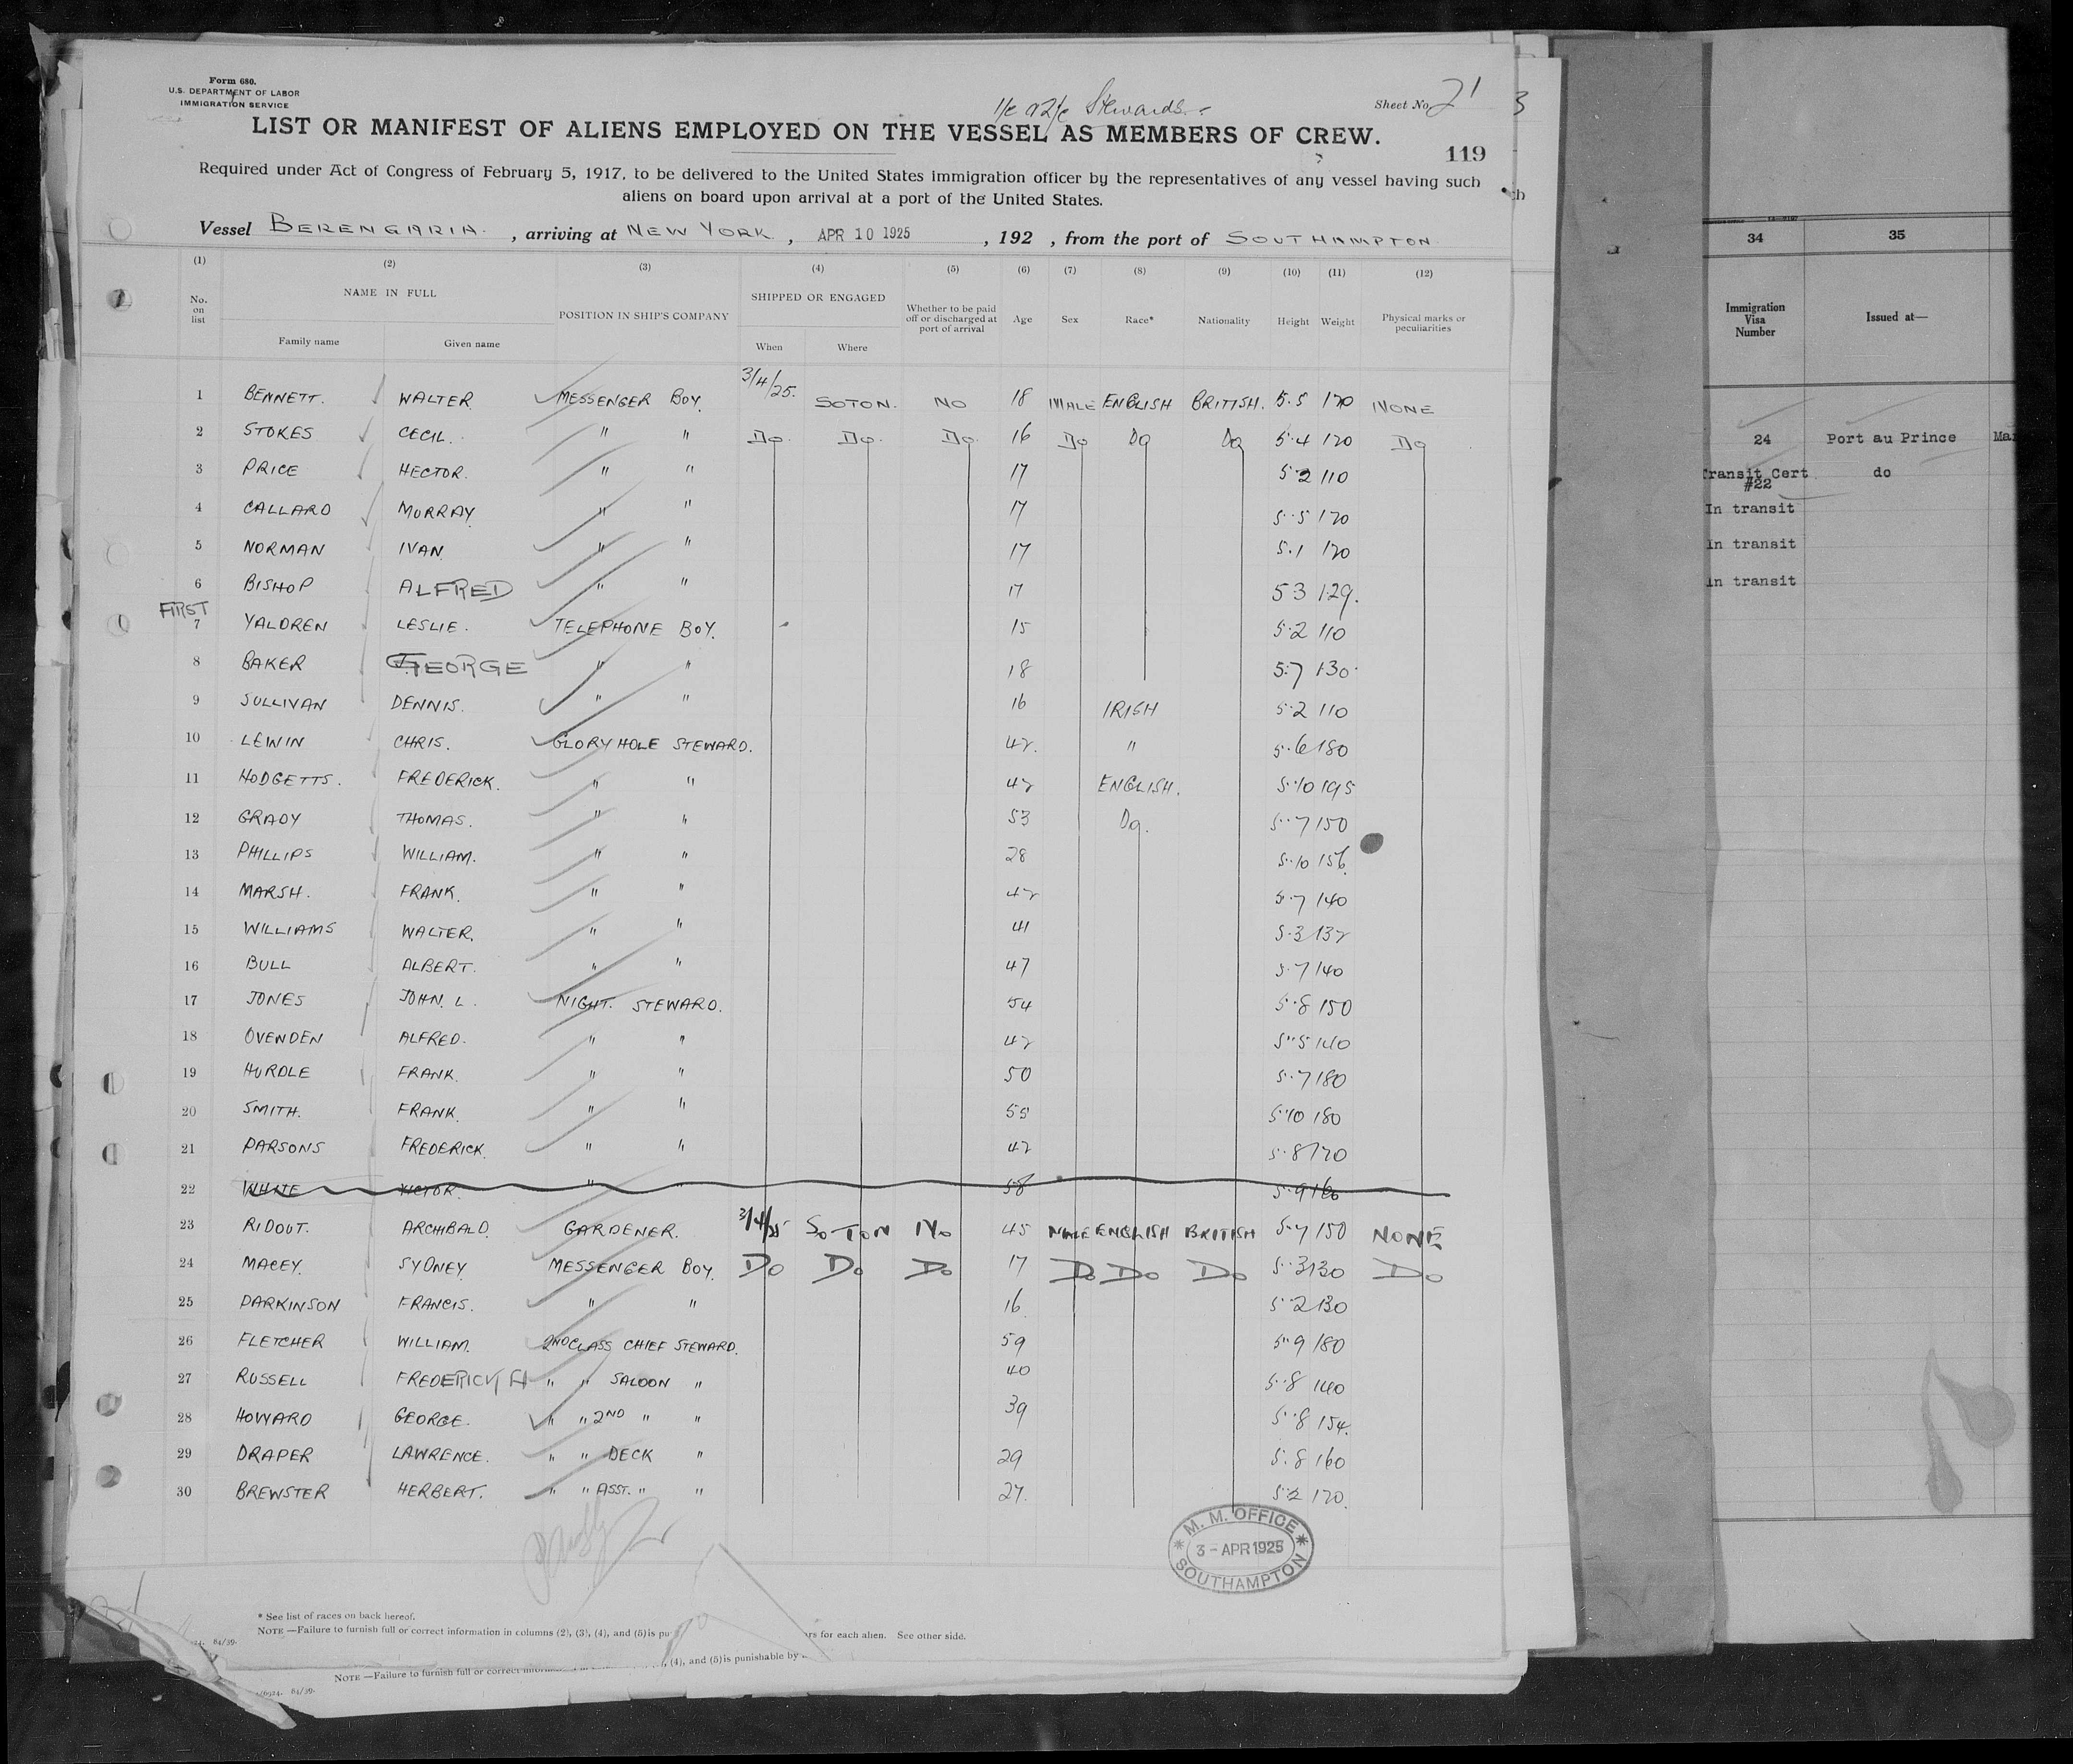 Form 680.
U.S. DEPARTMENT OF LABOR
IMMIGRATION SERVICE
Stewards
Sheet No. 21
3
LIST OR MANIFEST OF ALIENS EMPLOYED ON THE VESSEL AS MEMBERS OF CREW.
119
Required under Act of Congress of February 5, 1917, to be delivered to the United States immigration officer by the representatives of any vessel having such
aliens on board upon arrival at a port of the United States.
Vessel BERENGARIA , arriving at NEW YORK , APR 10 1925 , 192 , from the port of SOUTHAMPTON
(1) (2) (3) (4) (5) (6) (7) (8) (9) (10) (11) (12)
No. on list NAME IN FULL Family name Given name POSITION IN SHIP'S COMPANY SHIPPED OR ENGAGED When Where Whether to be paid off or discharged at port of arrival Age Sex Race* Nationality Height Weight Physical marks or peculiarities
1 BENNETT. WALTER. MESSENGER BOY. 3/4/25. SOTON. NO 18 MALE ENGLISH BRITISH. 5.5 120 NONE
2 STOKES CECIL. " " Do. Do. Do. 16 Do Do Do 5.4 120 Do
3 PRICE HECTOR. " " 17 5.2 110
4 CALLARD MURRAY " " 17 5.5 120
5 NORMAN IVAN. " " 17 5.1 120
6 BISHOP ALFRED " " 17 5 3 129.
FIRST
7 YALDREN LESLIE. TELEPHONE BOY. 15 5.2 110
8 BAKER GEORGE " " 18 5.7 130
9 SULLIVAN DENNIS. " " 16 IRISH 5.2 110
10 LEWIN CHRIS. GLORY HOLE STEWARD. 42. " 5.6 180
11 HODGETTS. FREDERICK. " " 42 ENGLISH. 5.10 195
12 GRADY THOMAS. " " 53 Do. 5.7 150
13 PHILLIPS WILLIAM. " " 28 5.10 156.
14 MARSH. FRANK. " " 42 5.7 140
15 WILLIAMS WALTER. " " 41 5.3 132
16 BULL ALBERT. " " 47 5.7 140
17 JONES JOHN. L. NIGHT. STEWARD. 54 5.8 150
18 OVENDEN ALFRED. " " 42 5.5 140
19 HURDLE FRANK. " " 50 5.7 180
20 SMITH. FRANK. " " 55 5.10 180
21 PARSONS FREDERICK. " " 42 5.8 170
22 WHITE VICTOR. " " 58 5.9 160
23 RIDOUT. ARCHIBALD. GARDENER. 3/4/25 SoTON No 45 MALE ENGLISH BRITISH 5.7 150 NONE
24 MACEY. SYDNEY MESSENGER BOY. Do Do Do 17 Do Do Do 5.3 130 Do
25 PARKINSON FRANCIS. " " 16 5.2 130
26 FLETCHER WILLIAM. 2ND CLASS CHIEF STEWARD. 59 5.9 180
27 RUSSELL FREDERICK H " " SALOON " 40 5.8 140
28 HOWARD GEORGE. " " 2ND " " 39 5.8 154.
29 DRAPER LAWRENCE. " " DECK " 29 5.8 160
30 BREWSTER HERBERT. " " ASST. " " 27. 5.2 120.
M. M. OFFICE
3 - APR 1925
SOUTHAMPTON
* See list of races on back hereof.
NOTE —Failure to furnish full or correct information in columns (2), (3), (4), and (5) is pu
rs for each alien. See other side.
84/39.
NOTE —Failure to furnish full or correct
(4), and (5) is punishable by
84/39.
34 35
Immigration Visa Number
Issued at—
24 Port au Prince
Transit Cert do
#22
In transit
In transit
In transit